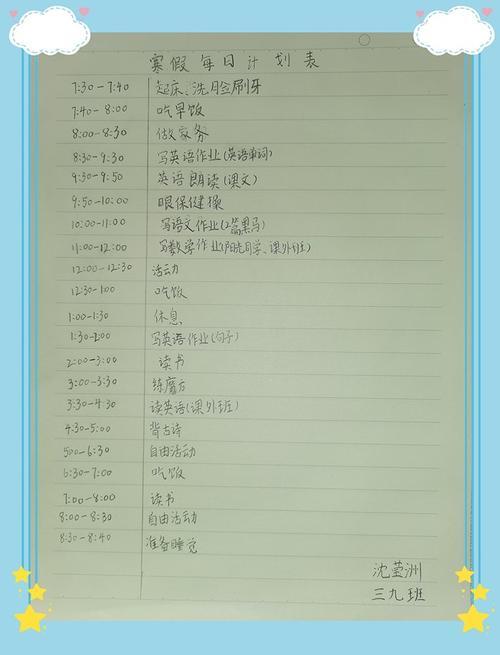 寒假每日计划表
7:30-7:40 起床、洗脸刷牙
7:40-8:00 吃早饭
8:00-8:30 做家务
8:30-9:30 写英语作业(英语单词)
9:30-9:50 英语朗读(课文)
9:50-10:00 眼保健操
10:00-11:00 写语文作业(2篇黑马)
11:00-12:00 写数学作业(阳光同学、课外班)
12:00-12:30 活动
12:30-1:00 吃饭
1:00-1:30 休息
1:30-2:00 写英语作业(句子)
2:00-3:00 读书
3:00-3:30 练魔方
3:30-4:30 读英语(课外班)
4:30-5:00 背古诗
5:00-6:30 自由活动
6:30-7:00 吃饭
7:00-8:00 读书
8:00-8:30 自由活动
8:30-8:40 准备睡觉
沈莹洲
三九班